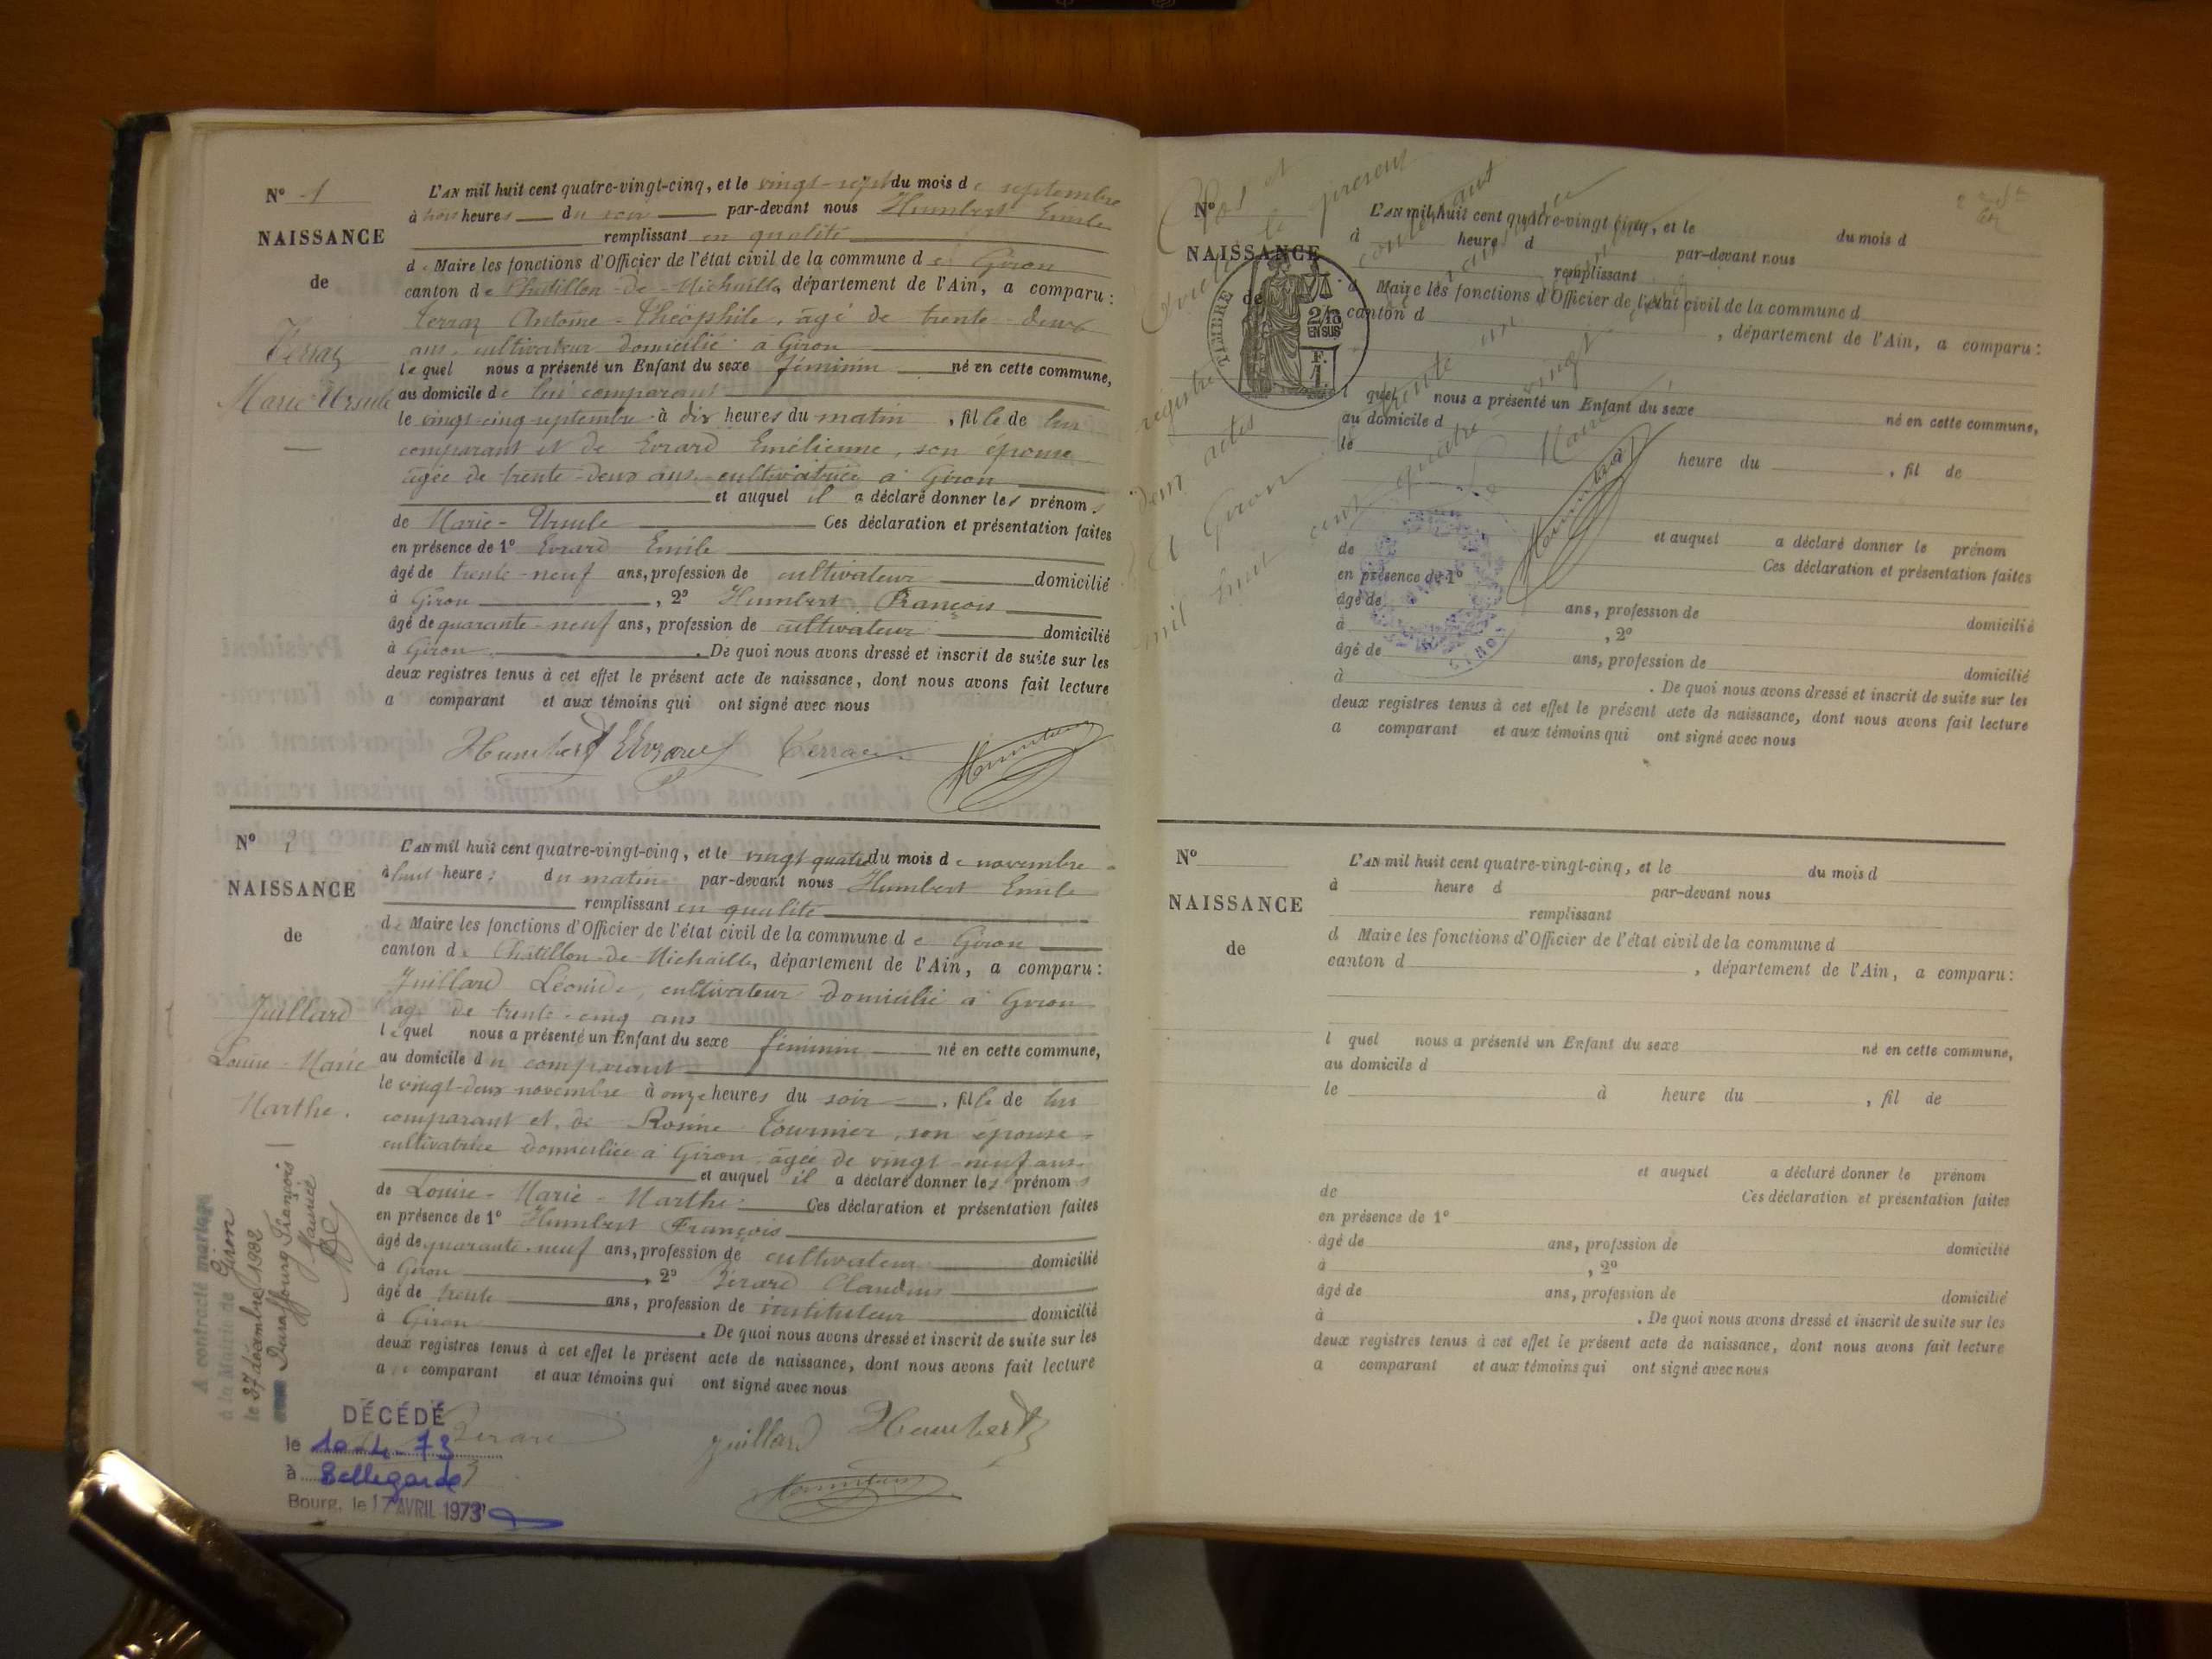 N° 1
NAISSANCE
de
Terraz
Marie Ursule
L'AN mil huit cent quatre-vingt-cinq, et le vingt-sept du mois de septembre
à trois heures du soir par-devant nous Humbert Emile
remplissant en qualité
de Maire les fonctions d'Officier de l'état civil de la commune de Giron
canton de Châtillon-de-Michaille, département de l'Ain, a comparu :
Terraz Antoine-Théophile, âgé de trente-deux
ans, cultivateur domicilié à Giron
lequel nous a présenté un Enfant du sexe féminin né en cette commune,
au domicile de lui comparant
le vingt-cinq septembre à dix heures du matin, fille de lui
comparant et de Evrard Emélienne, son épouse
âgée de trente-deux ans, cultivatrice à Giron
et auquel il a déclaré donner les prénoms
de Marie-Ursule Ces déclaration et présentation faites
en présence de 1° Evrard Emile
âgé de trente-neuf ans, profession de cultivateur domicilié
à Giron, 2° Humbert François
âgé de quarante-neuf ans, profession de cultivateur domicilié
à Giron. De quoi nous avons dressé et inscrit de suite sur les
deux registres tenus à cet effet le présent acte de naissance, dont nous avons fait lecture
a comparant et aux témoins qui ont signé avec nous
Humbert Evrard Terraz Humbert
N° 2
NAISSANCE
de
Juillard
Louise-Marie
Marthe.
L'AN mil huit cent quatre-vingt-cinq, et le vingt quatre du mois de novembre
à huit heures du matin par-devant nous Humbert Emile
remplissant en qualité
de Maire les fonctions d'Officier de l'état civil de la commune de Giron
canton de Châtillon-de-Michaille, département de l'Ain, a comparu :
Juillard Léonide, cultivateur domicilié à Giron
âgé de trente-cinq ans
lequel nous a présenté un Enfant du sexe féminin né en cette commune,
au domicile du comparant
le vingt-deux novembre à onze heures du soir, fille de lui
comparant et de Rosine Tournier, son épouse
cultivatrice domiciliée à Giron, âgée de vingt-neuf ans
et auquel il a déclaré donner les prénoms
de Louise-Marie-Marthe. Ces déclaration et présentation faites
en présence de 1° Humbert François
âgé de quarante-neuf ans, profession de cultivateur domicilié
à Giron, 2° Bérard Claudius
âgé de trente ans, profession de instituteur domicilié
à Giron. De quoi nous avons dressé et inscrit de suite sur les
deux registres tenus à cet effet le présent acte de naissance, dont nous avons fait lecture
au comparant et aux témoins qui ont signé avec nous
Bérard Juillard Humbert
Humbert
A contracté mariage
à la Mairie de Giron
le 27 décembre 1932
avec Duraffourg François
Maurice
DÉCÉDÉ
le 10-4-73
à Bellegarde
Bourg, le 17 AVRIL 1973
N°
NAISSANCE
de
TIMBRE
2/10
EN SUS
F.
1.
L'AN mil huit cent quatre-vingt cinq, et le du mois d
à heure d par-devant nous
remplissant
d Maire les fonctions d'Officier de l'état civil de la commune d
canton d , département de l'Ain, a comparu :
l quel nous a présenté un Enfant du sexe né en cette commune,
au domicile d
le à heure du , fil de
et auquel a déclaré donner le prénom
de Ces déclaration et présentation faites
en présence de 1°
âgé de ans, profession de domicilié
à , 2°
âgé de ans, profession de domicilié
à . De quoi nous avons dressé et inscrit de suite sur les
deux registres tenus à cet effet le présent acte de naissance, dont nous avons fait lecture
a comparant et aux témoins qui ont signé avec nous
le présent
registre contenant
deux actes
A Giron trente un
mil huit cent quatre-vingt
Maire
GIRON
N°
NAISSANCE
de
L'AN mil huit cent quatre-vingt-cinq, et le du mois d
à heure d par-devant nous
remplissant
d Maire les fonctions d'Officier de l'état civil de la commune d
canton d , département de l'Ain, a comparu :
l quel nous a présenté un Enfant du sexe né en cette commune,
au domicile d
le à heure du , fil de
et auquel a déclaré donner le prénom
de Ces déclaration et présentation faites
en présence de 1°
âgé de ans, profession de domicilié
à , 2°
âgé de ans, profession de domicilié
à . De quoi nous avons dressé et inscrit de suite sur les
deux registres tenus à cet effet le présent acte de naissance, dont nous avons fait lecture
a comparant et aux témoins qui ont signé avec nous